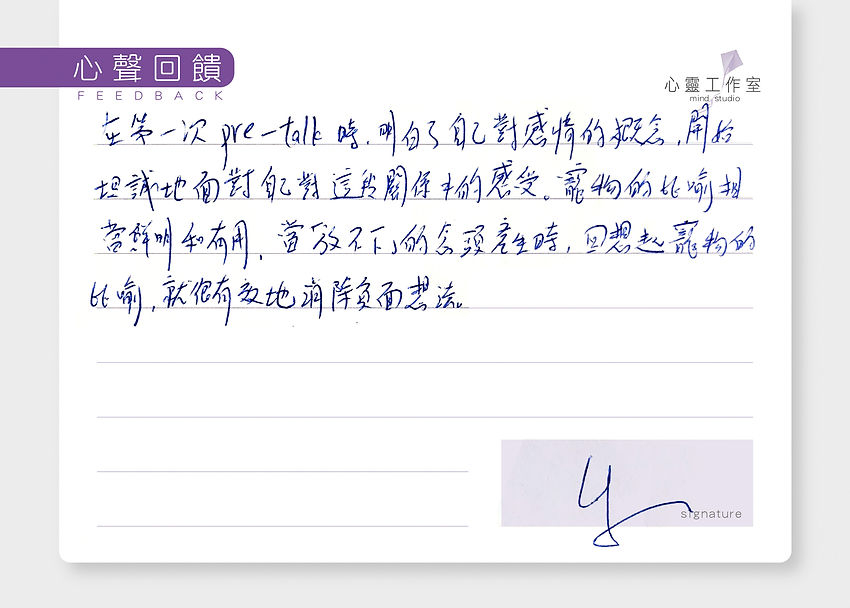 心聲回饋
FEEDBACK
心靈工作室
mind studio
在第一次 pre-talk 時，明白了自己對感情的概念，開始
坦誠地面對自己對這段關係中的感受。寵物的比喻相
當鮮明和有用，當「放不下」的念頭產生時，回想起寵物的
比喻，就很有效地消除負面想法。
signature